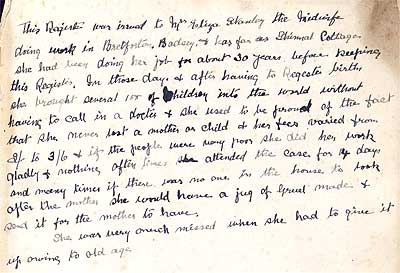 This Rejister was issued to Mrs Eliza Stanley the Midwife
doing work in Bretforton, Badsey, & has far as Shinnal Cottages
she had been doing her job for about 30 years before keeping
this Register. In those days & after having to Regester births
she brought several 100 of Children into the world without
having to call in a doctor & she used to be proud of the fact
that she never lost a mother or child & her fees varied from
2/- to 3/6 & if the people were very poor she did her work
gladly & nothing often times she attended the case for days
and many times if there was no one in the house to look
after the mother she would have a jug of Gruel made &
send it for the mother to have.
She was very much missed when she had to give it
up owing to old age